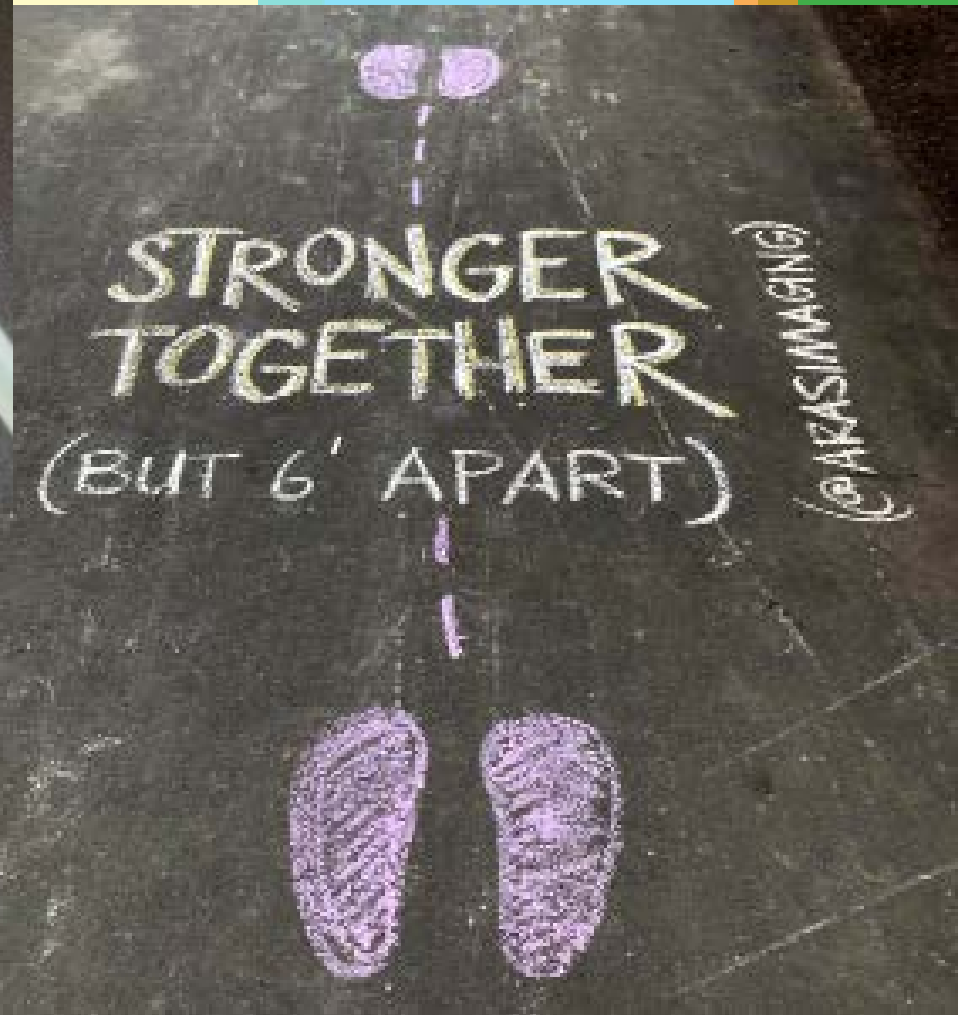 STRONGER
TOGETHER
(BUT 6' APART)
(@AKASIMAGING)